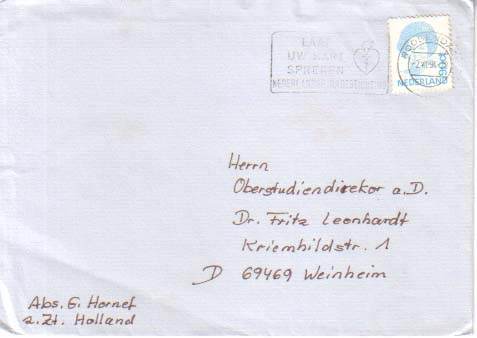 LAAT
UW HART
SPREKEN
NEDERLANDSE HARTSTICHTING
NEDERLAND
Herrn
Oberstudiendirekor a.D.
Dr. Fritz Leonhardt
Kriemhildstr. 1
D 69469 Weinheim
Abs. G. Hornef
z.Zt. Holland